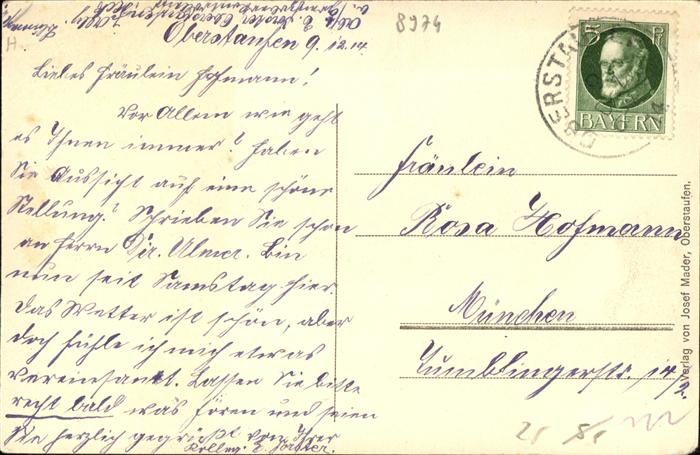 8974
Oberstaufen 9. 12. 14.
Liebes Fräulein Hofmann!
Vor Allem wie geht
es Ihnen immer? haben
Sie Aussicht auf eine schöne
Stellung? Schrieben Sie schon
an Herrn Dir. Ulmer. Bin
nun seit Samstag hier.
Das Wetter ist schön, aber
doch fühle ich mich etwas
vereinsamt. Lassen Sie bitte
recht bald was hören und seien
Sie herzlich gegrüßt von Ihrer
Kolleg. E. Forster.
5 Pf
BAYERN
OBERSTAUFEN
Fräulein
Rosa Hofmann
München
Tumblingerstr. 14/2
Verlag von Josef Mader, Oberstaufen.